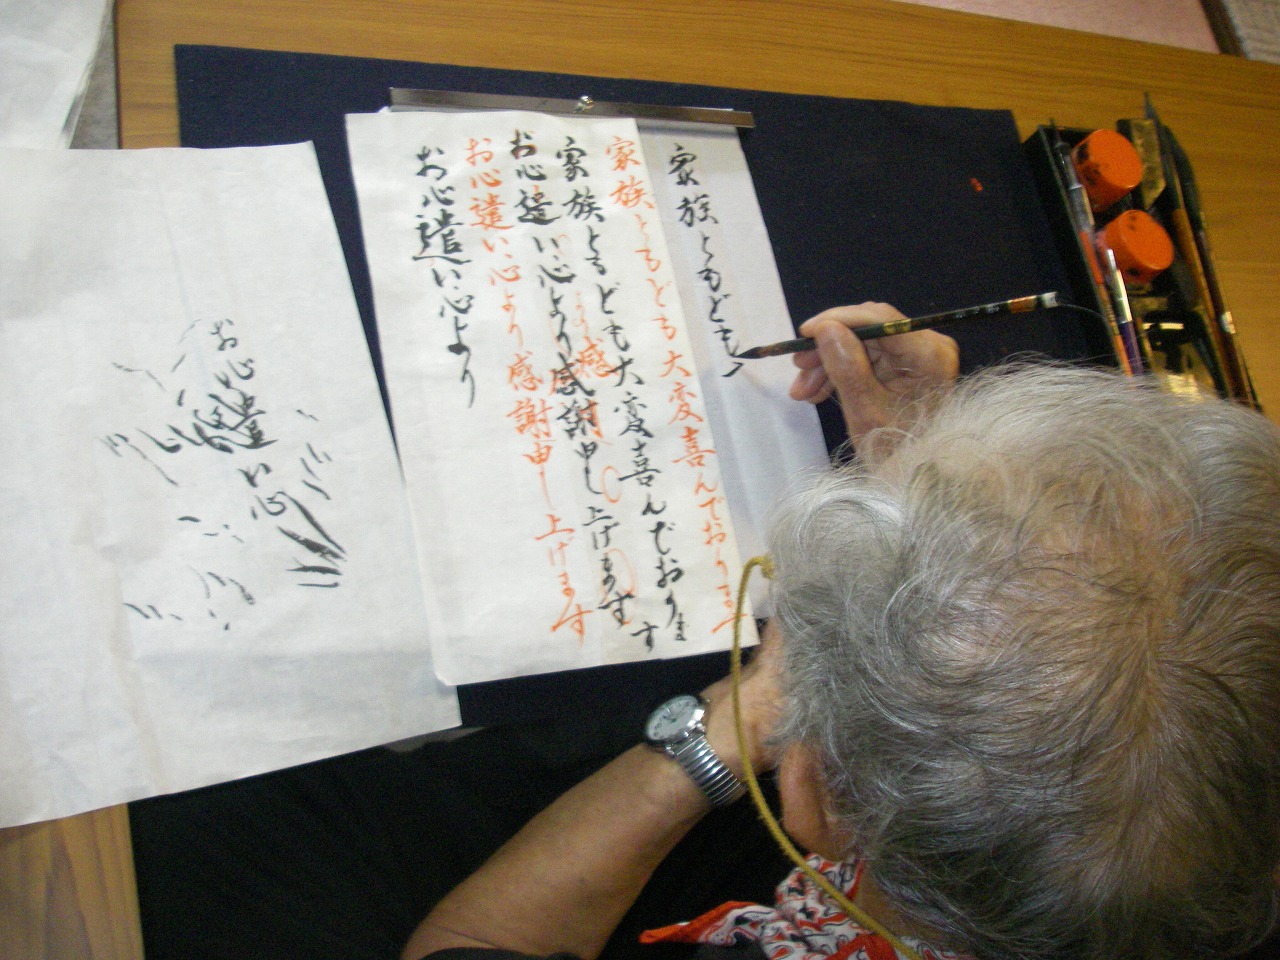 家族ともども
家族ともども大変喜んでおります
家族ともども大変喜んでおります
お心遣い心より感謝申し上げます
お心遣い心より感謝申し上げます
お心遣い心より
お心遣い心